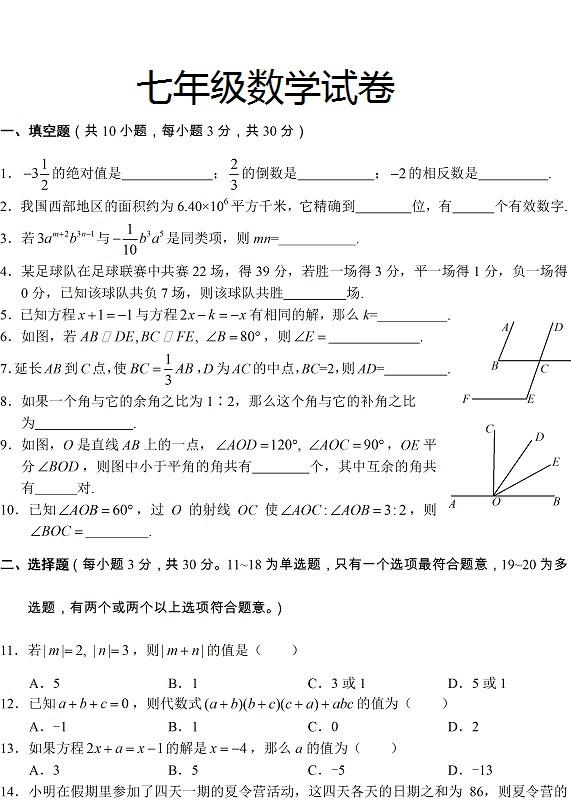 七年级数学试卷
一、填空题（共 10 小题，每小题 3 分，共 30 分）
1．−3 1/2 的绝对值是____________；2/3 的倒数是____________；−2 的相反数是__________.
2．我国西部地区的面积约为 6.40×10⁶ 平方千米，它精确到________位，有______个有效数字.
3．若 3aᵐ⁺²b³ⁿ⁻¹ 与 −1/10 b³a⁵ 是同类项，则 mn=___________.
4．某足球队在足球联赛中共赛 22 场，得 39 分，若胜一场得 3 分，平一场得 1 分，负一场得
0 分，已知该球队共负 7 场，则该球队共胜_________场.
5．已知方程 x+1=−1 与方程 2x−k=−x 有相同的解，那么 k=_________.
6．如图，若 AB ▯ DE, BC ▯ FE, ∠B=80°，则∠E=_____________.
7.延长 AB 到 C 点，使 BC=1/3 AB，D 为 AC 的中点，BC=2，则 AD=_________.
8．如果一个角与它的余角之比为 1∶2，那么这个角与它的补角之比
为______________.
9．如图，O 是直线 AB 上的一点，∠AOD=120°, ∠AOC=90°，OE 平
分∠BOD，则图中小于平角的角共有________个，其中互余的角共
有______对.
10．已知∠AOB=60°，过 O 的射线 OC 使∠AOC:∠AOB=3:2，则
∠BOC=_________.
A D
B C
F E
C D
E
A O B
二、选择题（每小题 3 分，共 30 分。11~18 为单选题，只有一个选项最符合题意，19~20 为多
选题，有两个或两个以上选项符合题意。）
11．若|m|=2, |n|=3，则|m+n|的值是（　　）
A．5 B．1 C．3 或 1 D．5 或 1
12．已知 a+b+c=0，则代数式 (a+b)(b+c)(c+a)+abc 的值为（　　）
A．-1 B．1 C．0 D．2
13．如果方程 2x+a=x−1 的解是 x=−4，那么 a 的值为（　　）
A．3 B．5 C．-5 D．-13
14．小明在假期里参加了四天一期的夏令营活动，这四天各天的日期之和为 86，则夏令营的